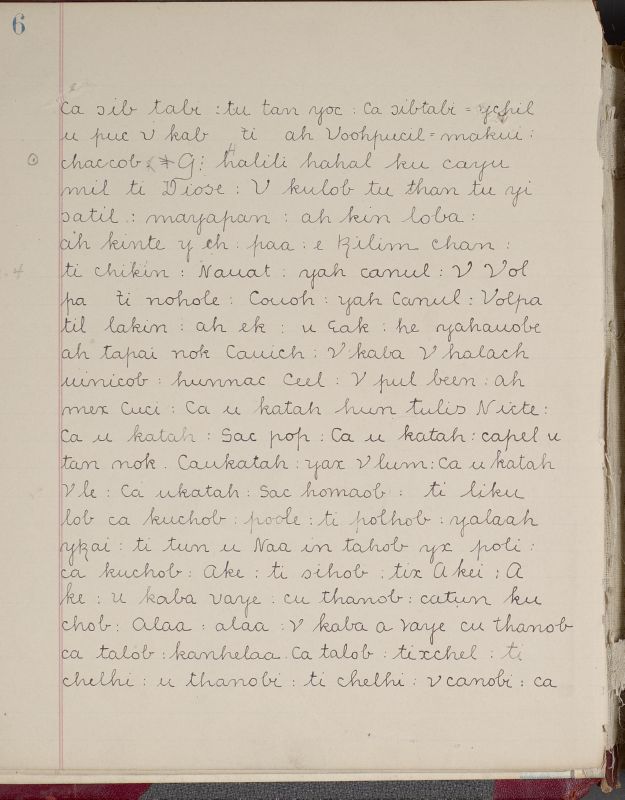 6
ca sib tabi : tu tan yoc : ca sibtabi = ychil
u puc v kab ti ah Voohpucil = makui :
chaccob G : halili hahal ku cayu
mil ti Diose : V kulob tu than tu yi
satil : mayapan : ah kin loba :
ah kinte y ch : paa : e kilim chan :
ti chikin : Nauat : yah canul : V Vol
pa ti nohole : Couoh : yah Canul : Volpa
til lakin : ah ek : u Eak : he yahauobe
ah tapai nok Cauich : V kaba V halach
uinicob : hunnac Ceel : V pul been : ah
mex Cuci : Ca u katah hun tulis Nicte :
Ca u katah : Sac pop : Ca u katah : capel u
tan nok . Caukatah : yax V lum : Ca u katah
V le : Ca ukatah : Sac homaob : ti liku
lob ca kuchob : poole : ti polhob : yalaah
ykai : ti tun u Naa in tahob yx poli :
ca kuchob : Ake : ti sihob : tix Akei : A
ke : u kaba vaye : cu thanob : catun ku
chob : Alaa : alaa : v kaba a vaye cu thanob
ca talob : kanhelaa . Ca talob : tixchel : ti
chelhi : u thanobi : ti chelhi : v canobi : ca